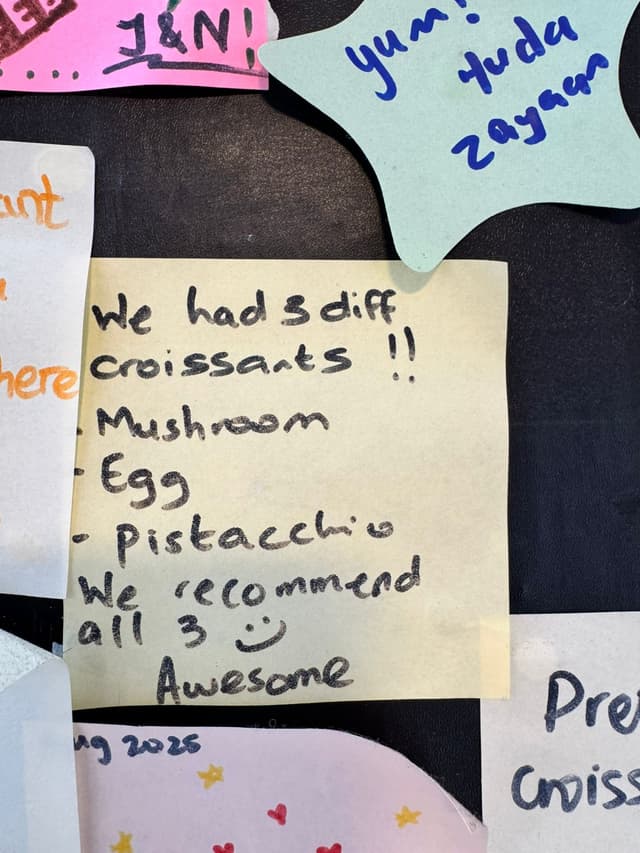 J&N!
yum!
Yuda
zayaan
ant
here
We had 3 diff
croissants !!
- Mushroom
- Egg
- Pistacchio
We recommend
all 3 :)
Awesome
ug 2025
Pre
Croiss